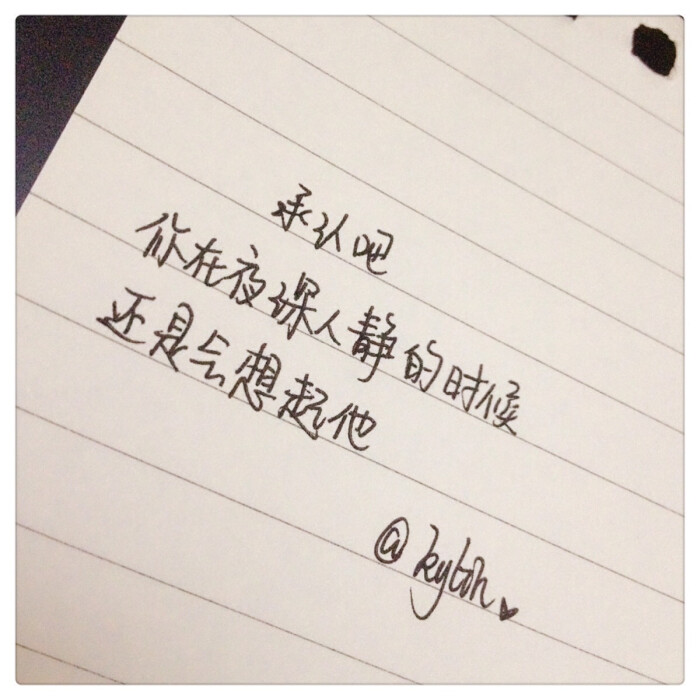 承认吧
你在夜深人静的时候
还是会想起他
@kyton